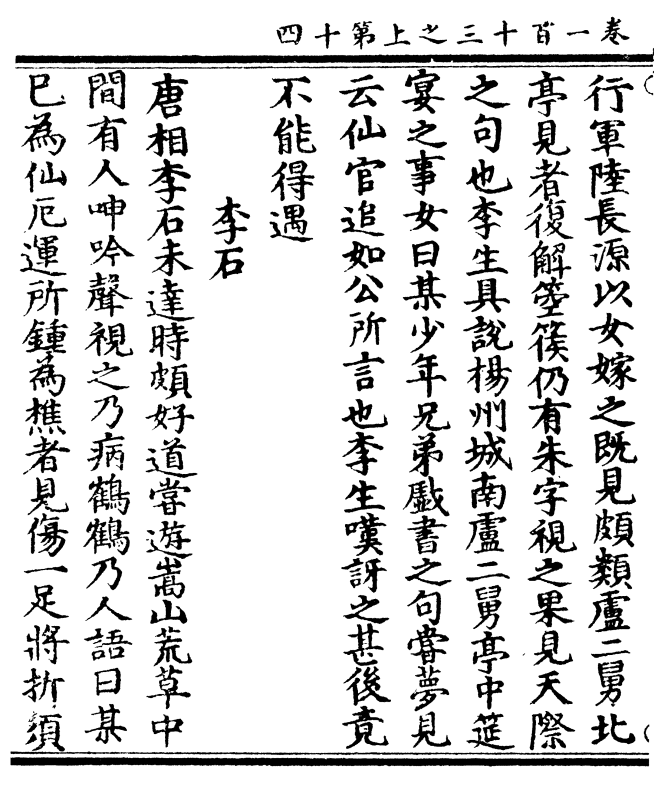 卷一百十三之上第十四
行軍陸長源以女嫁之既見頗類盧二舅北
亭見者復解箜篌仍有朱字視之果見天際
之句也李生具說楊州城南盧二舅亭中筵
宴之事女曰某少年兄弟戲書之句嘗夢見
云仙官追如公所言也李生嘆訝之甚後竟
不能得遇
李石
唐相李石未達時頗好道嘗遊嵩山荒草中
間有人呻吟聲視之乃病鶴鶴乃人語曰某
已為仙厄運所鍾為樵者見傷一足將折須